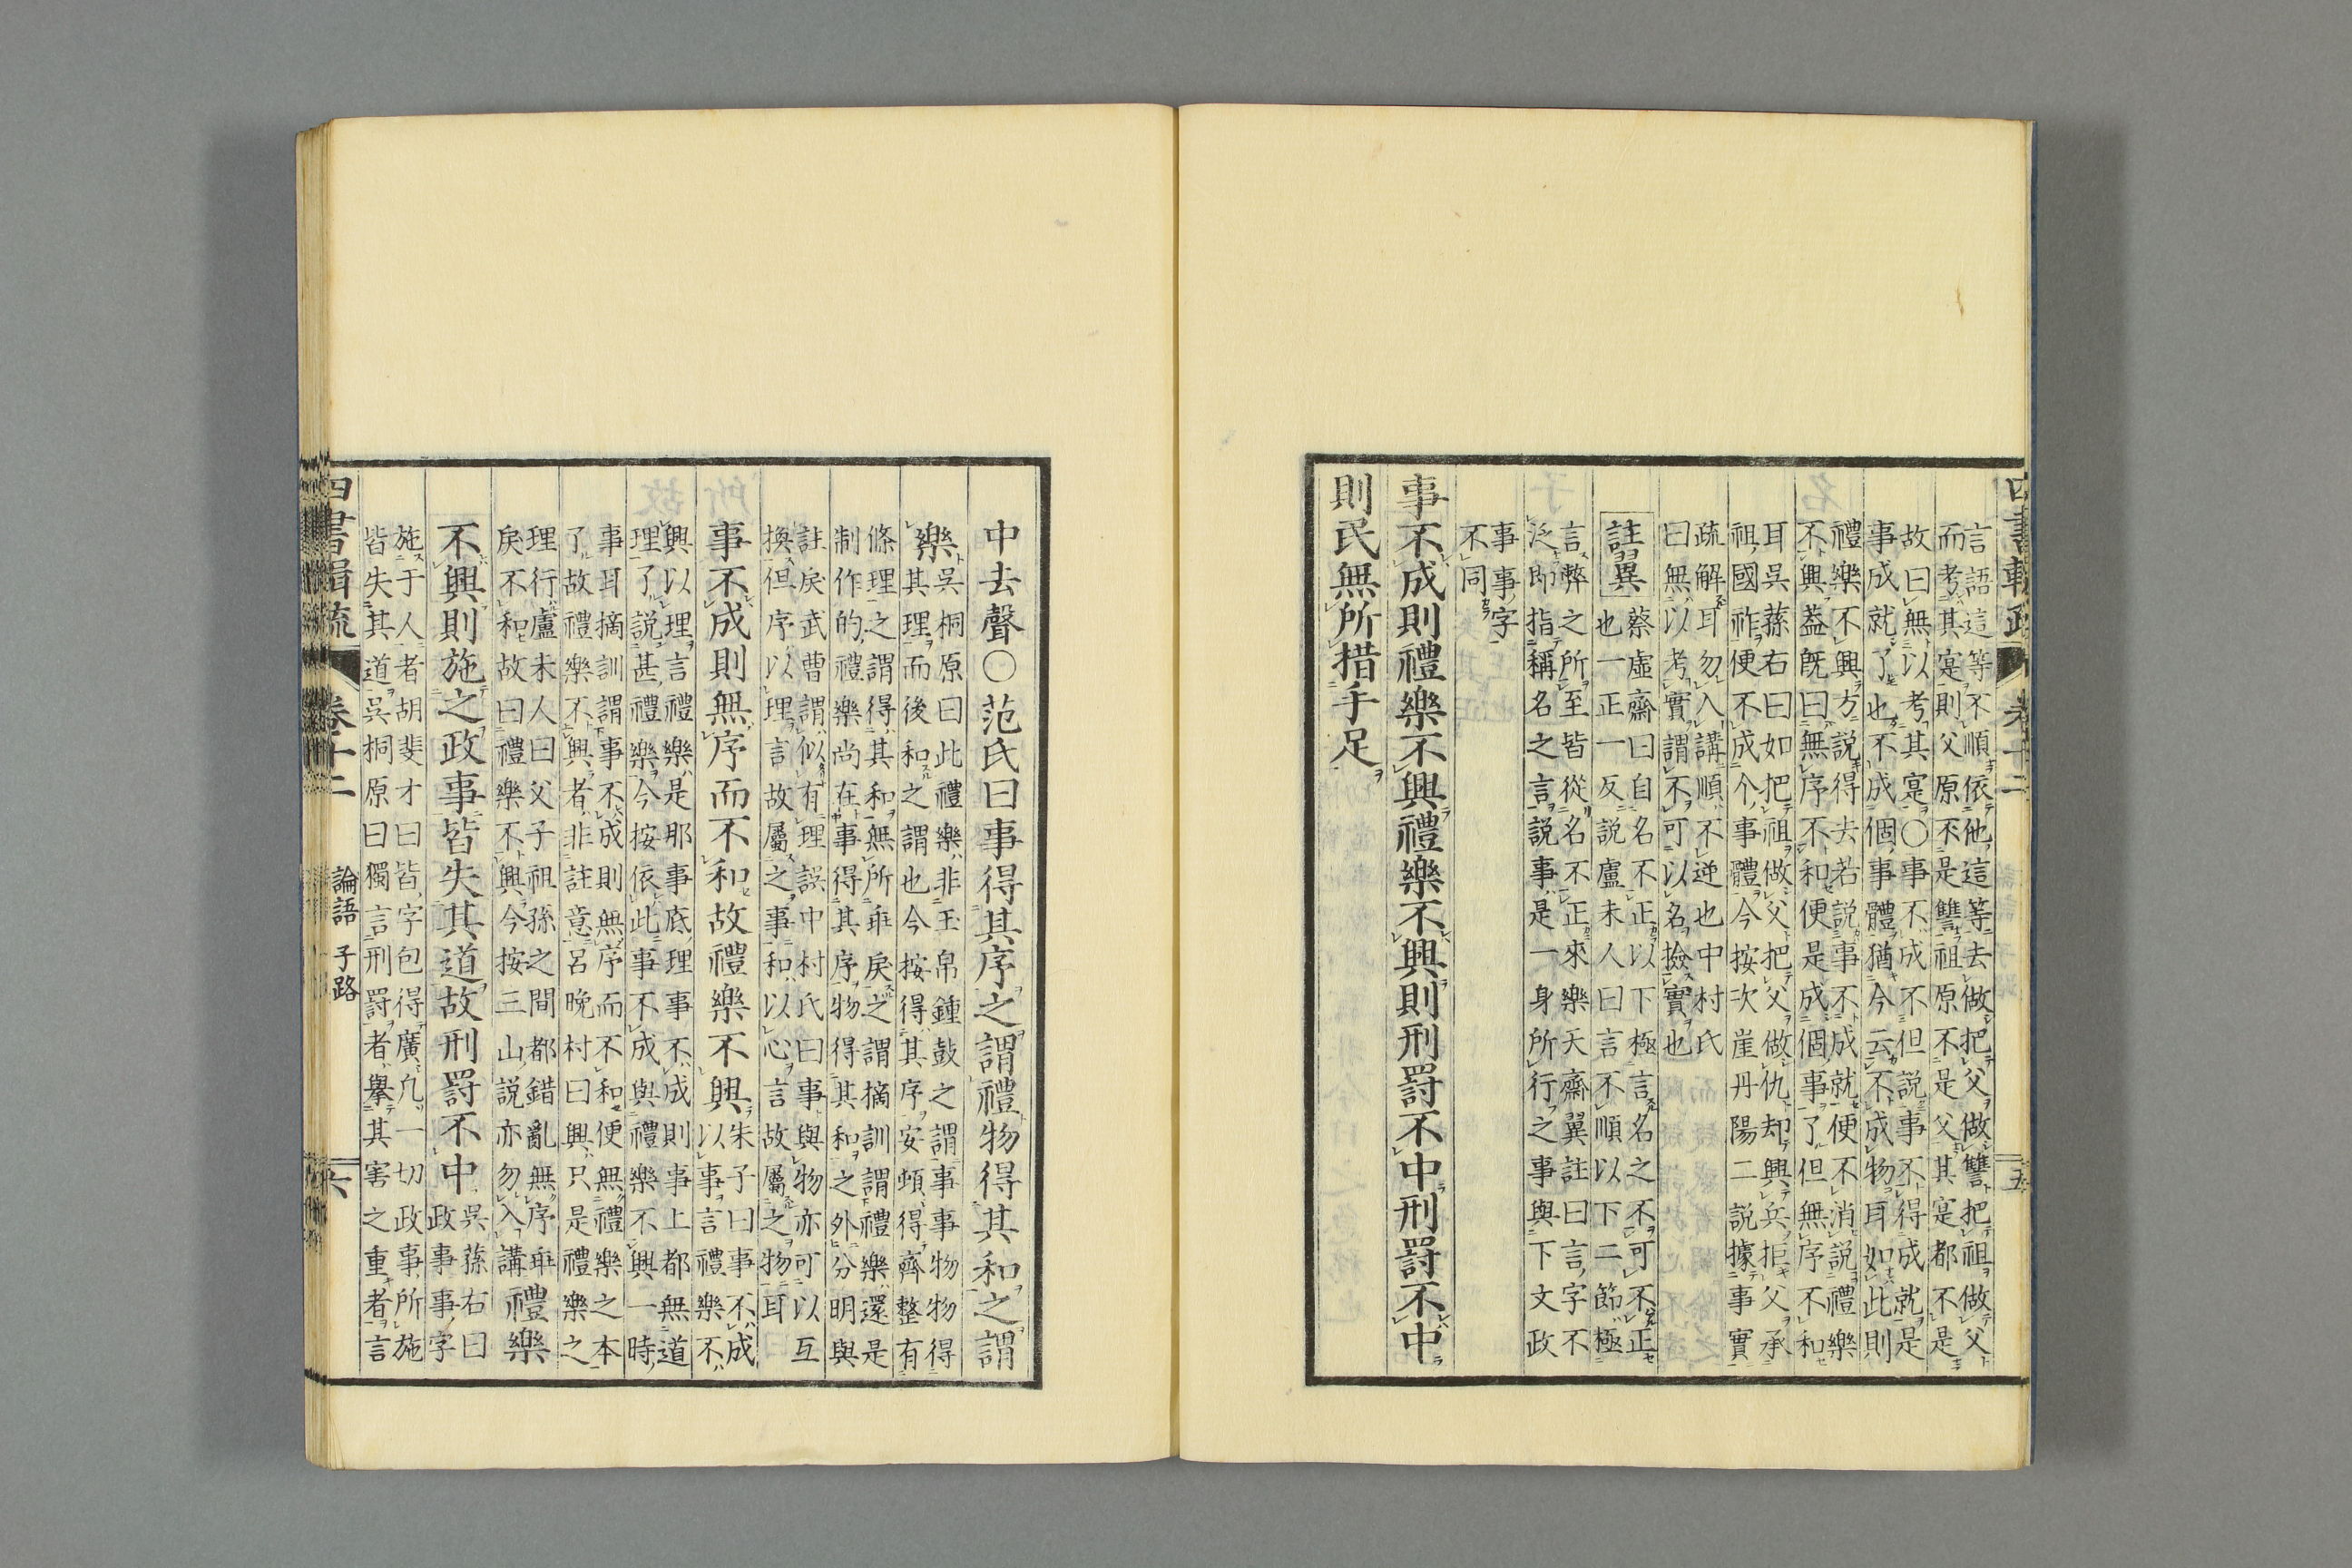 言語這等不順依他這等去做把父做讐把祖做父
而考其寔則父原不是讐祖原不是父其寔都不是
故曰無以考其寔〇事不成不但説事不得成就是
事成就了也不成個事體猶今云不成物耳如此則
禮樂不興方説得去若説事不成就便不消説禮樂
不興蓋既曰無序不和便是成個事了但無序不和
耳呉蓀右曰如把祖做父把父做仇却興兵拒父承
祖國祚便不成个事體今按次崖丹陽二説據事實
疏解耳勿入講順不逆也中村氏
曰無以考實謂不可以名撿實也
註翼
蔡虛齋曰自名不正以下極言名之不可不正
也一正一反説盧未人曰言不順以下二節極
言弊之所至皆從名不正來樂天齋翼註曰言字不
泛即指稱名之言説事是一身所行之事與下文政
事事字
不同
事不成則禮樂不興禮樂不興則刑罰不中刑罰不中
則民無所措手足
中去聲〇范氏曰事得其序之謂禮物得其和之謂
樂
呉桐原曰此禮樂非玉帛鍾鼓之謂事事物物得
其理而後和之謂也今按得其序安頓得齊整有
條理之謂得其和無所乖戾之謂摘訓謂禮樂還是
制作的禮樂尚在事得其序物得其和之外分明與
註戾武曹謂似有理誤中村氏曰事與物亦可以互
換但序以理言故屬之事和以心言故屬之物耳
事不成則無序而不和故禮樂不興
朱子曰事不成
以事言禮樂不
興以理言禮樂是那事底理事不成則事上都無道
理了説甚禮樂今按依此事不成與禮樂不興一時
事耳摘訓謂事不成則無序而不和便無禮樂之本
了故禮樂不興者非註意呂晩村曰興只是禮樂之
理行盧未人曰父子祖孫之間都錯亂無序乖
戾不和故曰禮樂不興今按三山説亦勿入講
禮樂
不興則施之政事皆失其道故刑罰不中
呉蓀右曰
政事事字
施于人者胡斐才曰皆字包得廣凡一切政事所施
皆失其道呉桐原曰獨言刑罰者擧其害之重者言
四書輯疏
卷十二
論語
子路
六